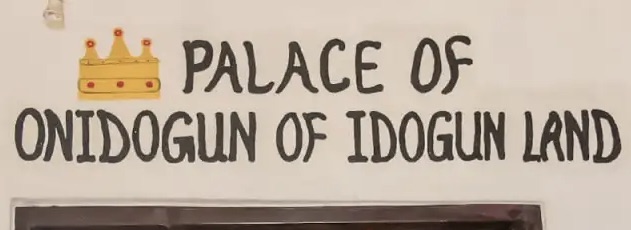 PALACE OF
ONIDOGUN OF IDOGUN LAND